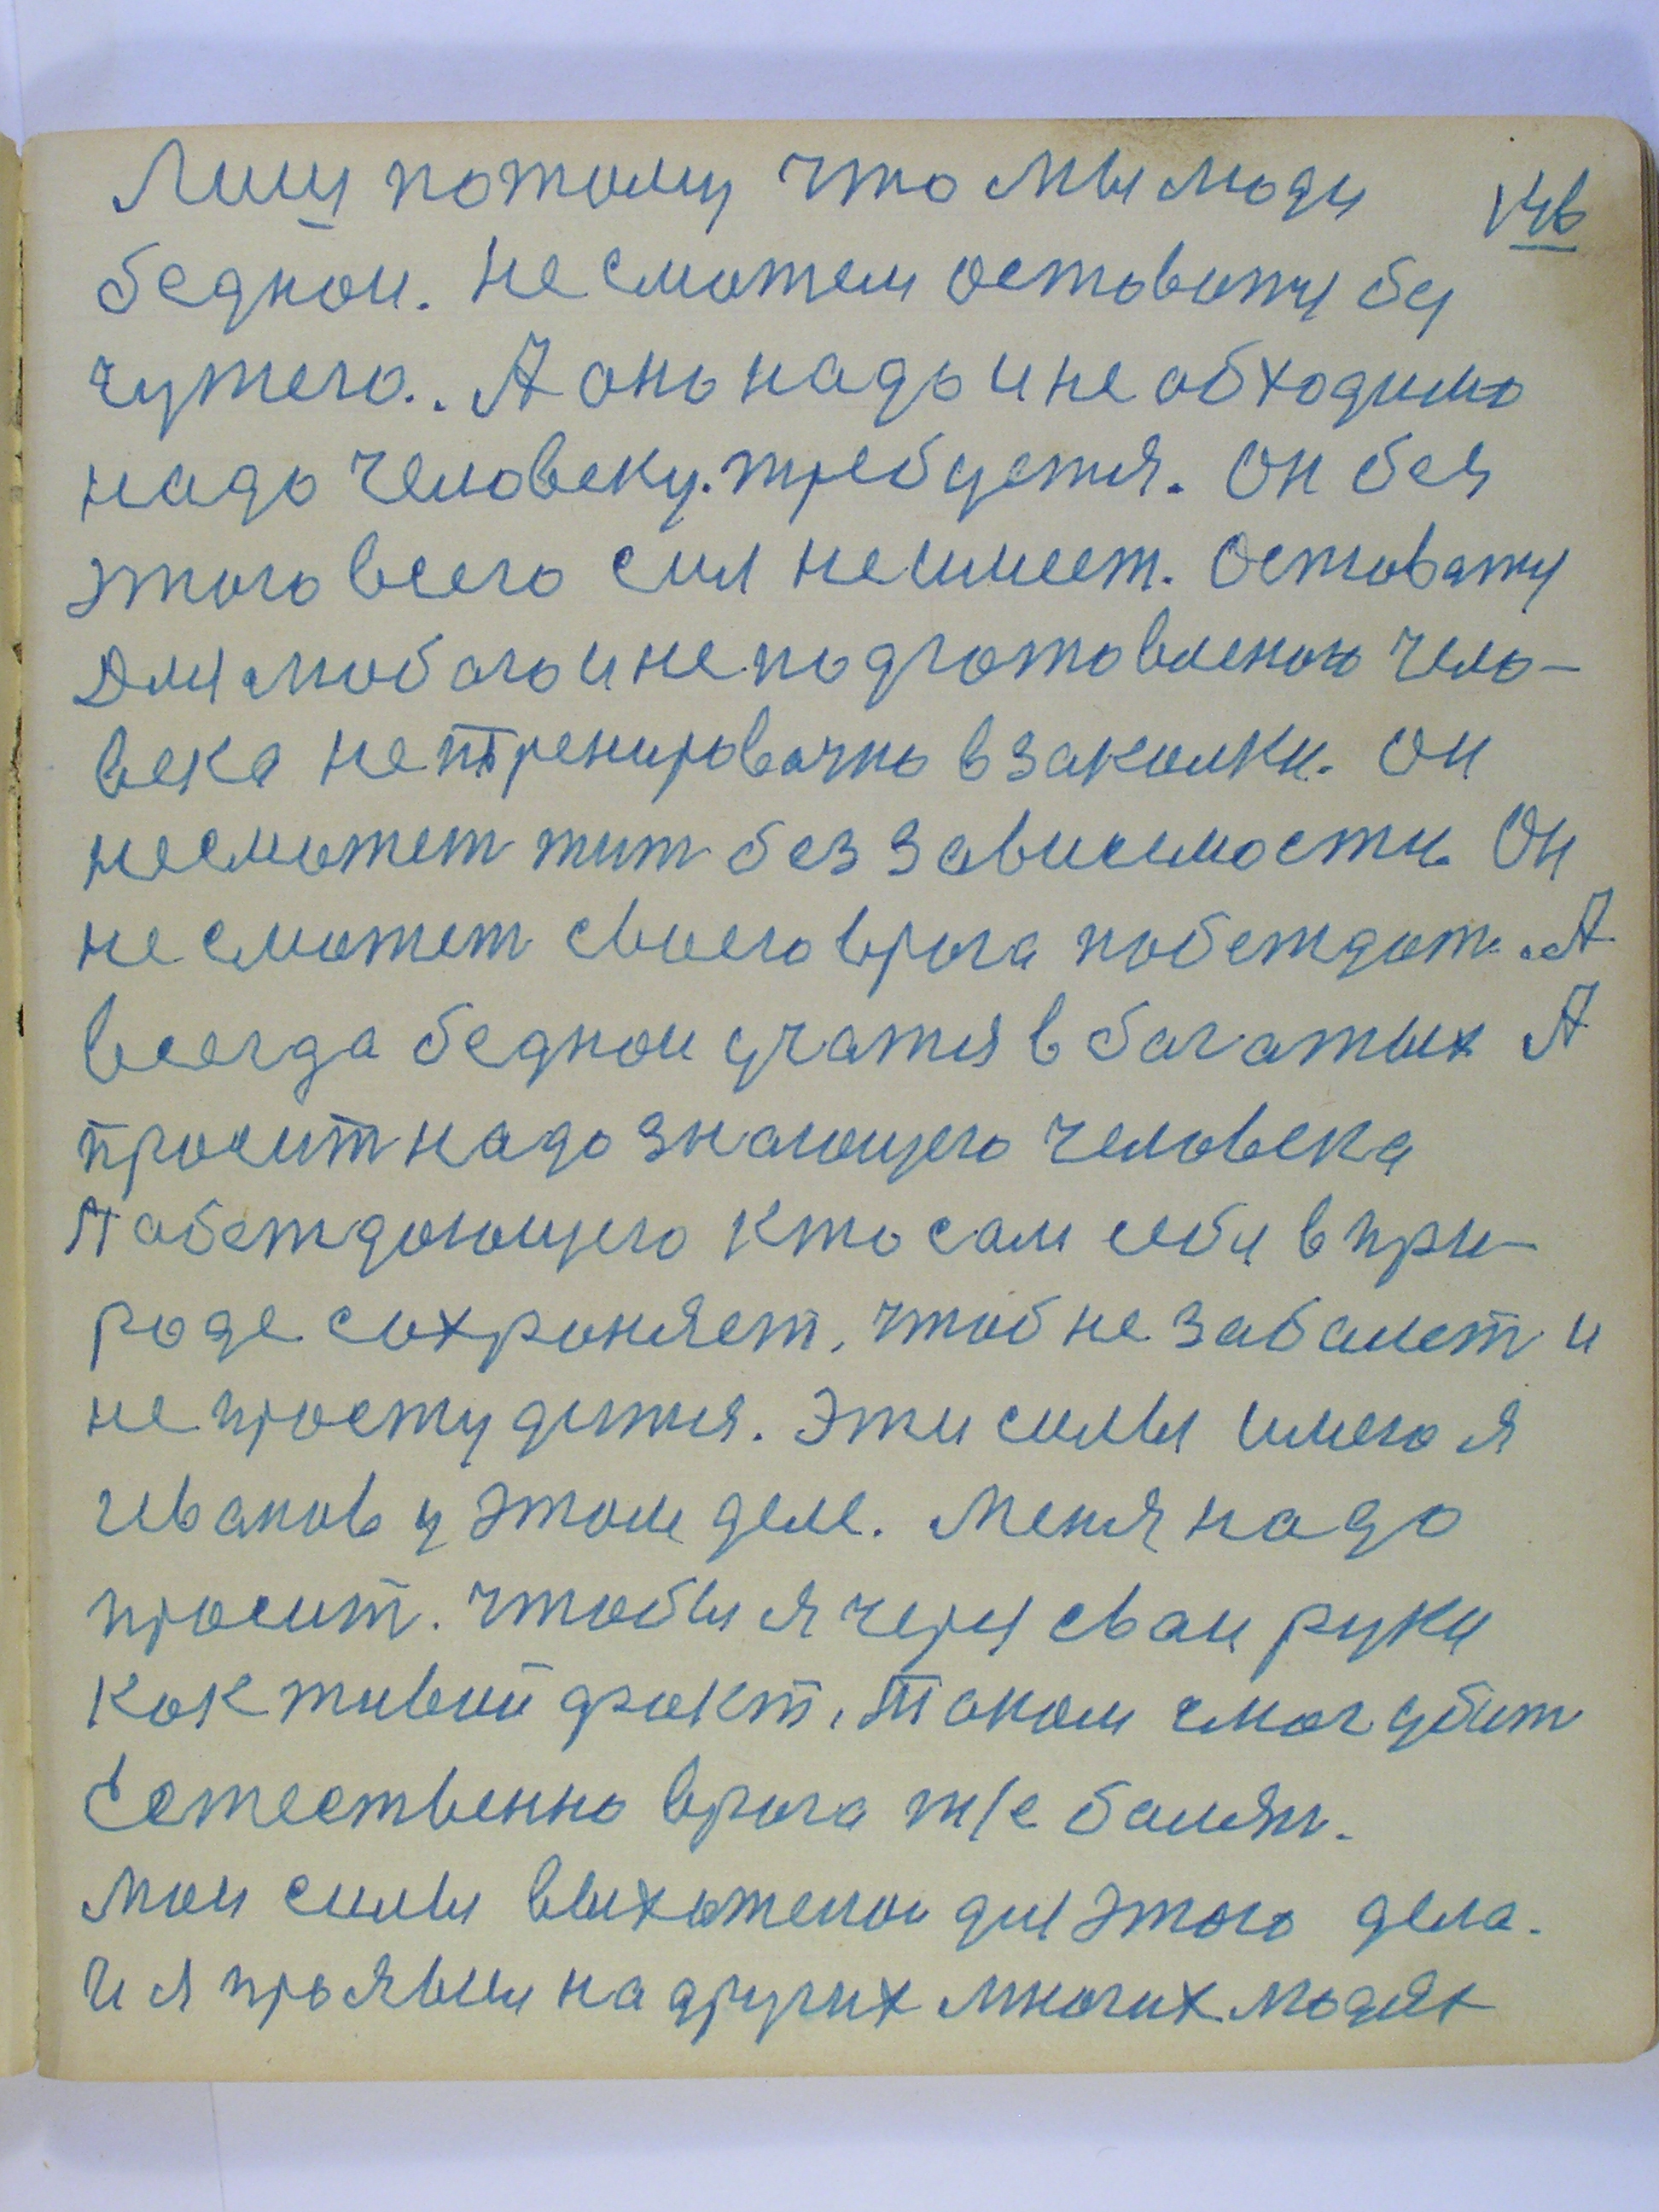 Лиш потому что мы люди
146
беднои. Не сможем оставатц бц
чужего.. А оно надо и не обходимо
надо человеку. требуется. Он без
этого всего сил неимеет. Оставатц
Для любого и не подготовленого чело-
века не тренировачно в закалки. Он
несможет жит без зависимости. Он
не сможет своего врага побеждат. А
всегда беднои учатся в багатых А
просит надо знающего человека
Пабеждающего кто сам себя в при-
роде сохроняет, чтоб не забалет и
не простудится. Эти силы имею я
Иванов у этом деле. Меня надо
просит. чтобы я через сваи руки
как живой факт, Таком смог убит
Естественно врага т/е балезн.
Мои силы выхоженои для этого дела.
И я проявил на других многих людях